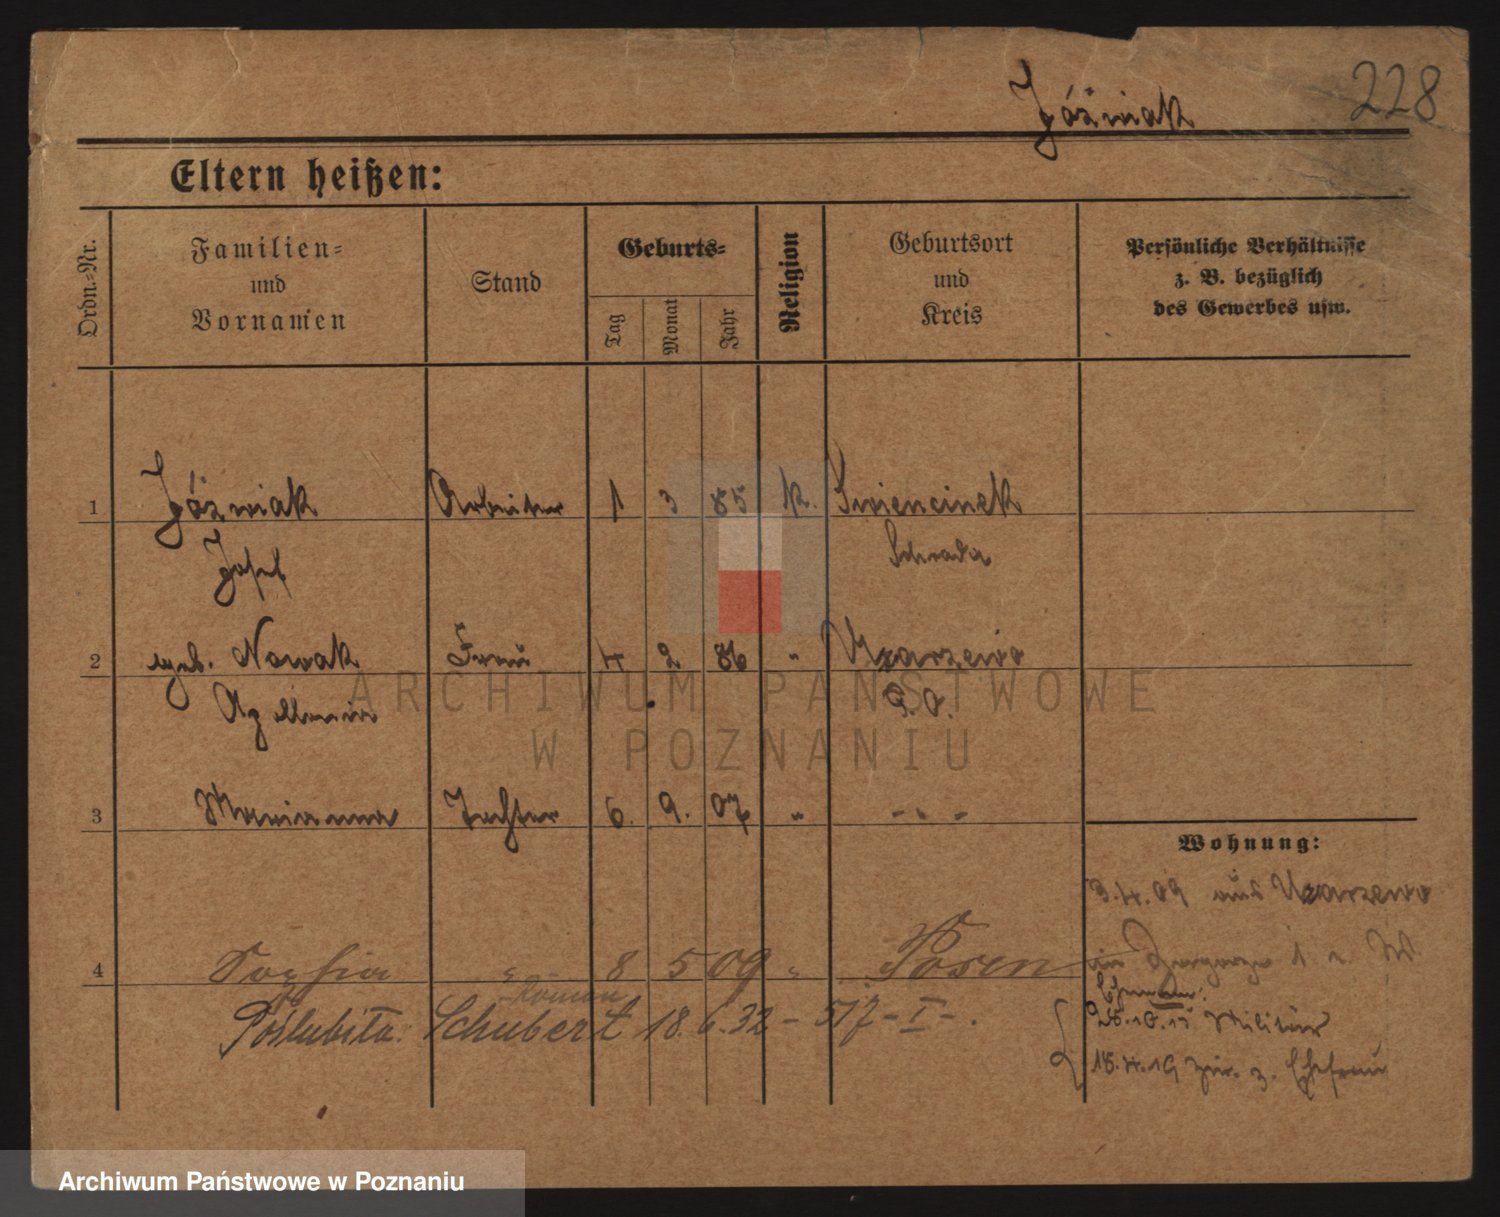 Jóźwiak 228
Eltern heißen:
Ordn.-Nr.
Familien-
und
Vornamen
Stand
Geburts-
Tag
Monat
Jahr
Religion
Geburtsort
und
Kreis
Persönliche Verhältnisse
z. B. bezüglich
des Gewerbes usw.
1 Jóźwiak Arbeiter 1 3 85 k. Swiencinek
Josef Schroda
2 geb. Nowak Frau 4 2 86 " Uzarzewo
Apollonia P. O.
3 Marianna Tochter 6. 9. 07 " - " -
Wohnung:
3.4.09 aus Uzarzewo
4 Sophia " 8 5 09 " Posen
Zagorze 1
Ehemann:
Roman
Poślubiła: Schubert 18.6.32 - 517 - I - .
26.10.15 Militär
18.4.19 zur. z. Ehefrau
ARCHIWUM PAŃSTWOWE
W POZNANIU
Archiwum Państwowe w Poznaniu